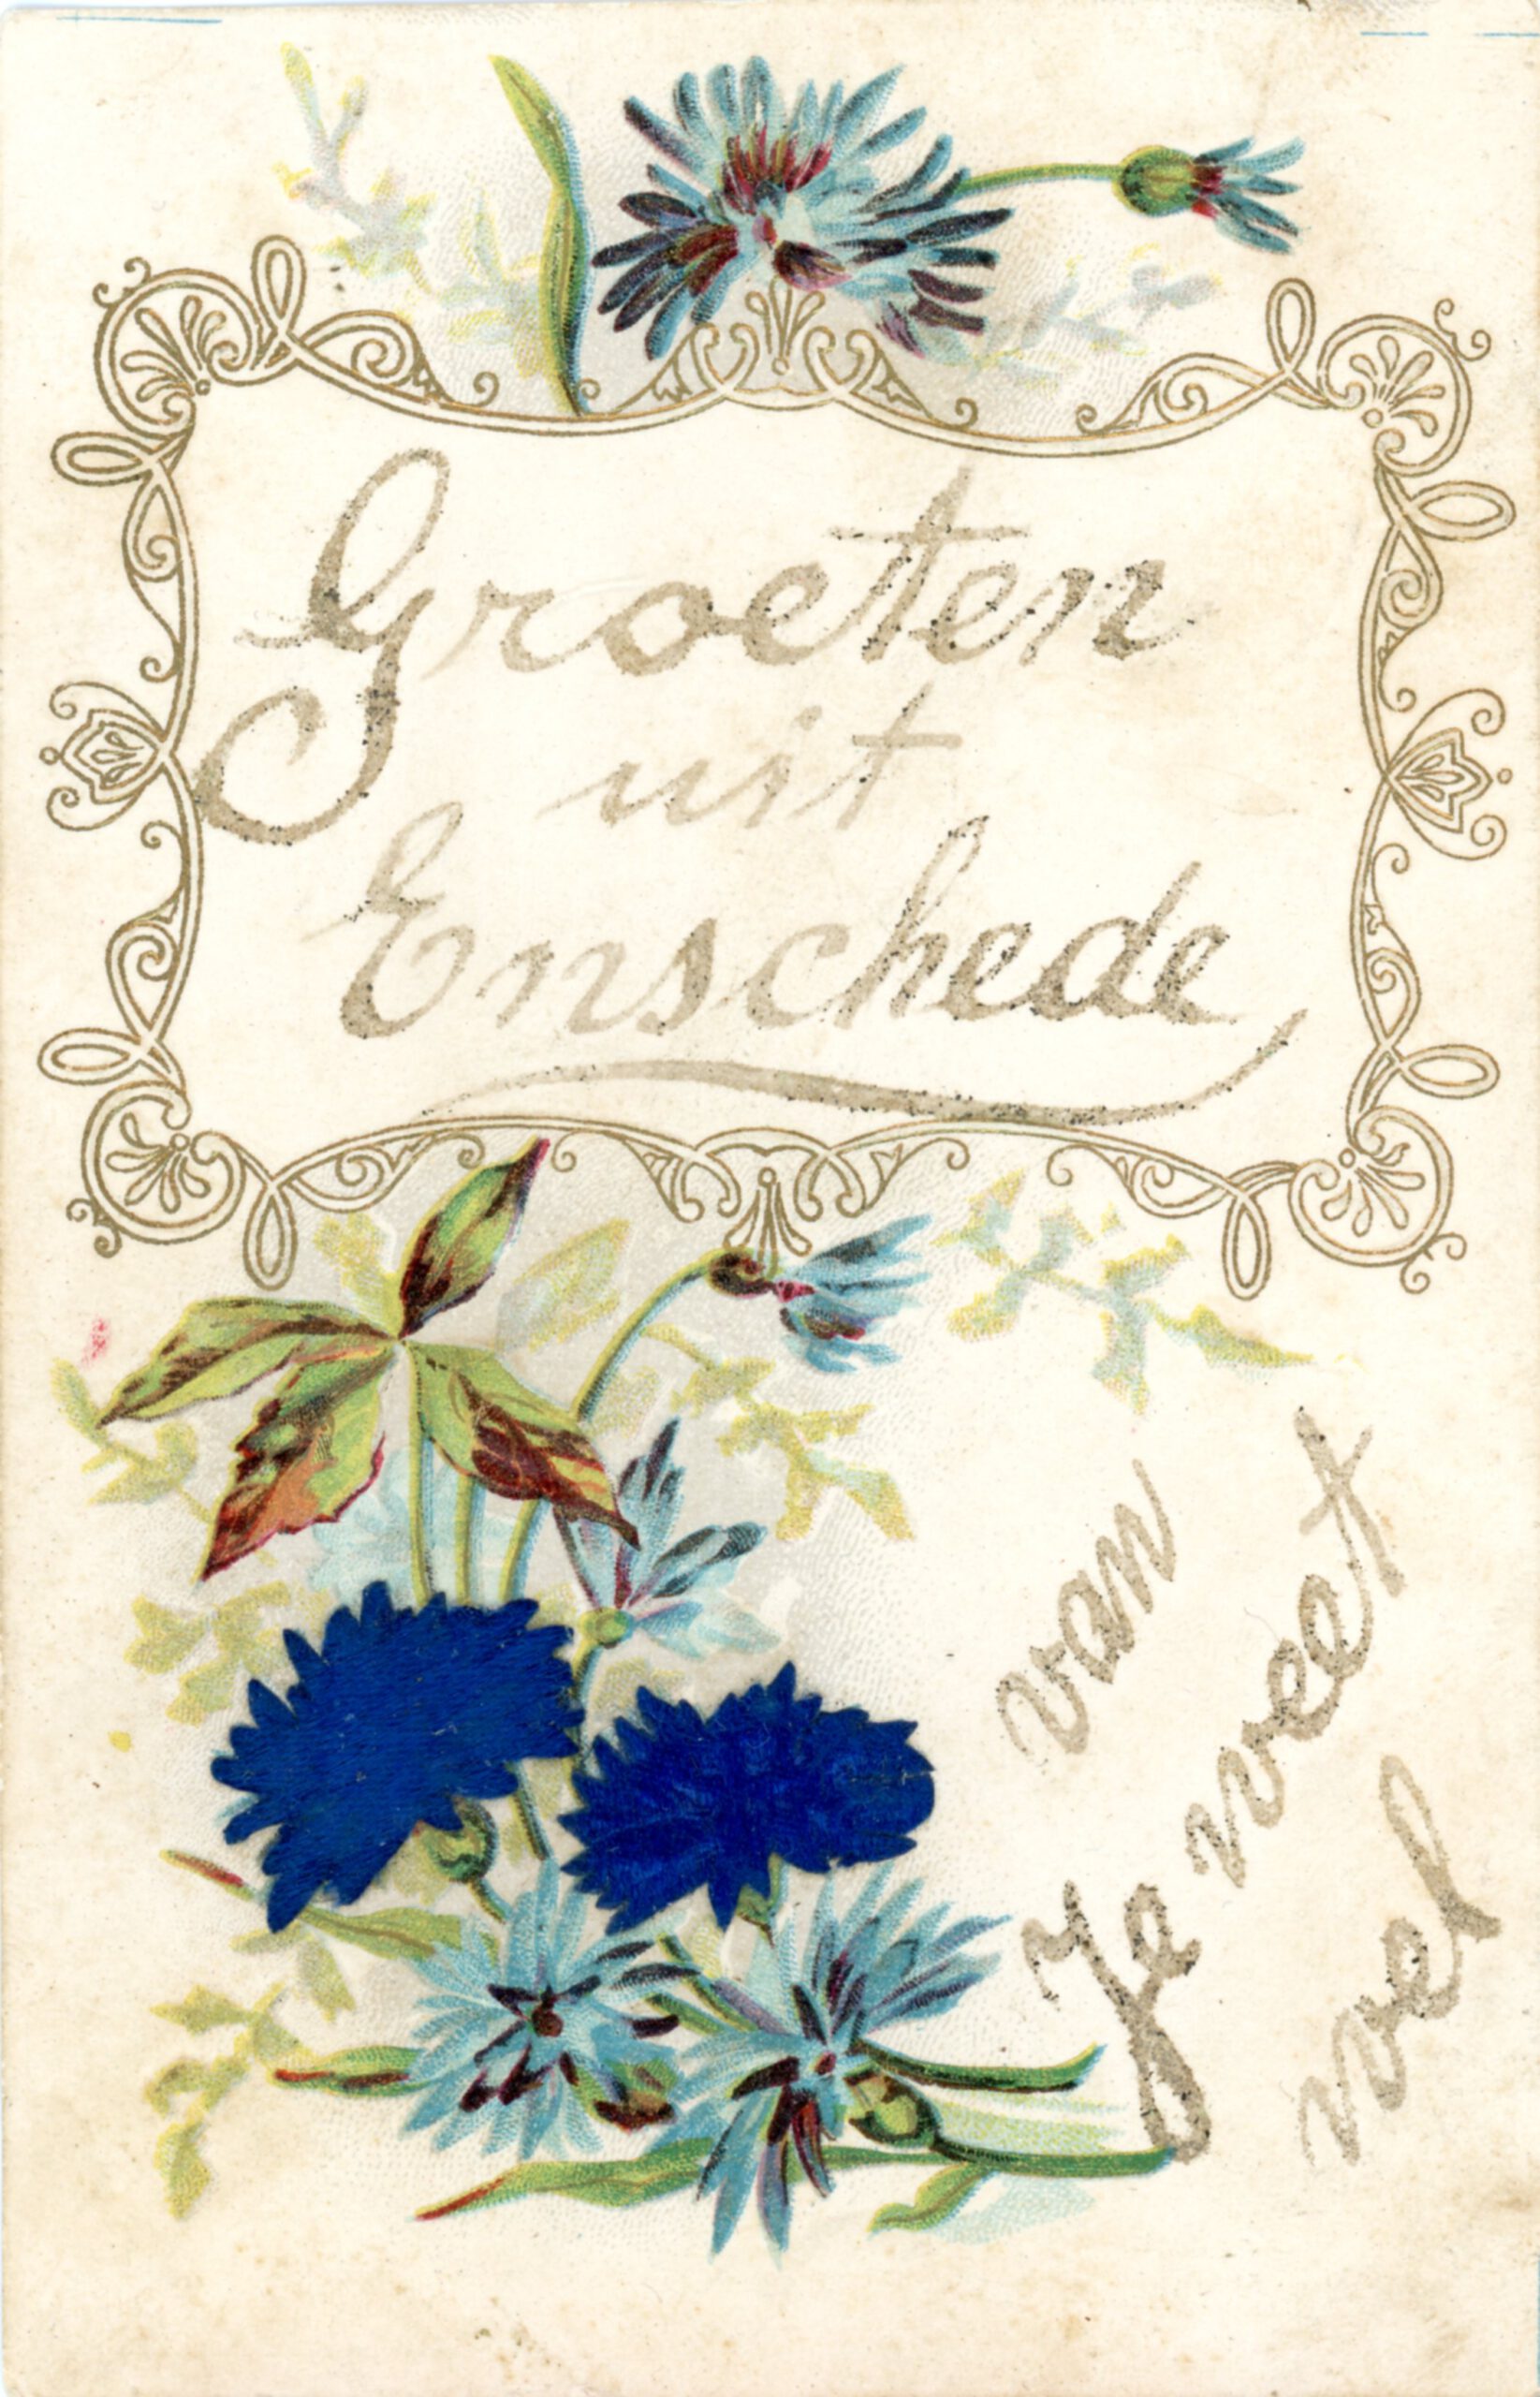 Groeten
uit
Enschede
van
Je weet
wel